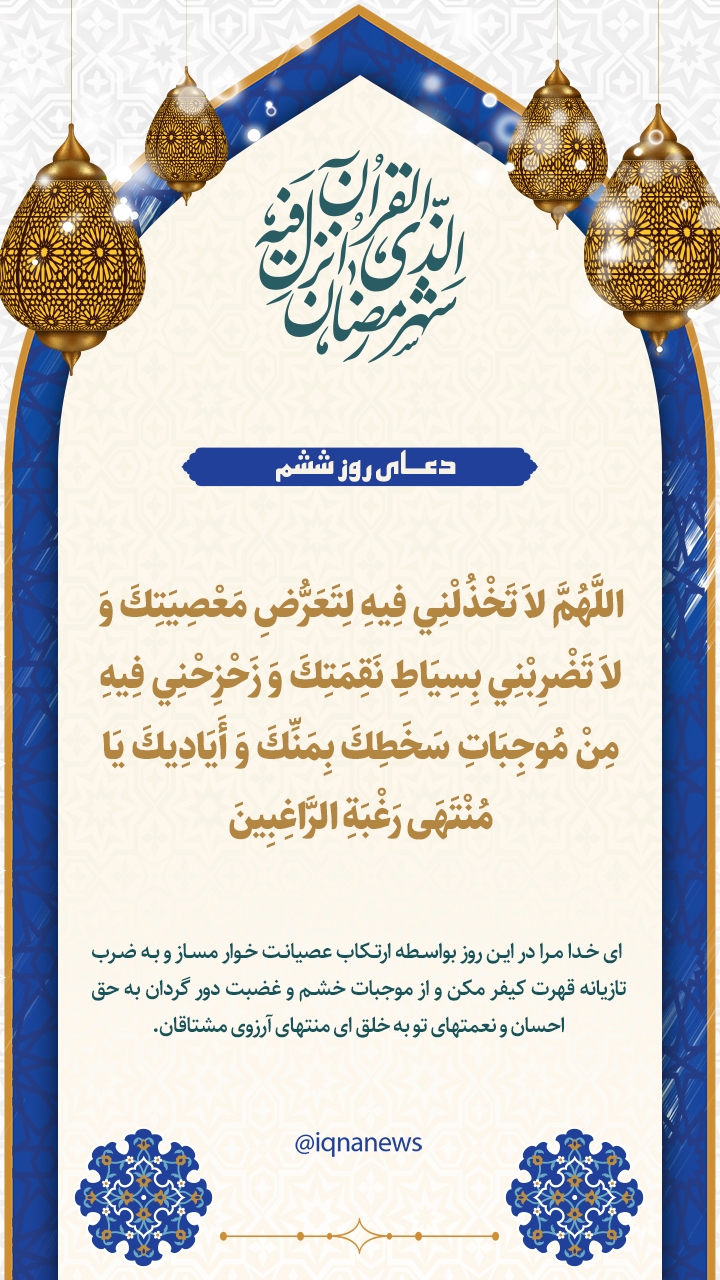 شهر رمضان الذی انزل فیه القرآن
دعای روز ششم
اللَّهُمَّ لاَ تَخْذُلْنِي فِيهِ لِتَعَرُّضِ مَعْصِيَتِكَ وَ
لاَ تَضْرِبْنِي بِسِيَاطِ نَقِمَتِكَ وَ زَحْزِحْنِي فِيهِ
مِنْ مُوجِبَاتِ سَخَطِكَ بِمَنِّكَ وَ أَيَادِيكَ يَا
مُنْتَهَى رَغْبَةِ الرَّاغِبِينَ
ای خدا مرا در این روز بواسطه ارتکاب عصیانت خوار مساز و به ضرب
تازیانه قهرت کیفر مکن و از موجبات خشم و غضبت دور گردان به حق
احسان و نعمتهای تو به خلق ای منتهای آرزوی مشتاقان.
@iqnanews